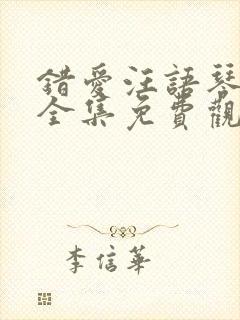 錯愛汪語琴
全集免費觀
李信華